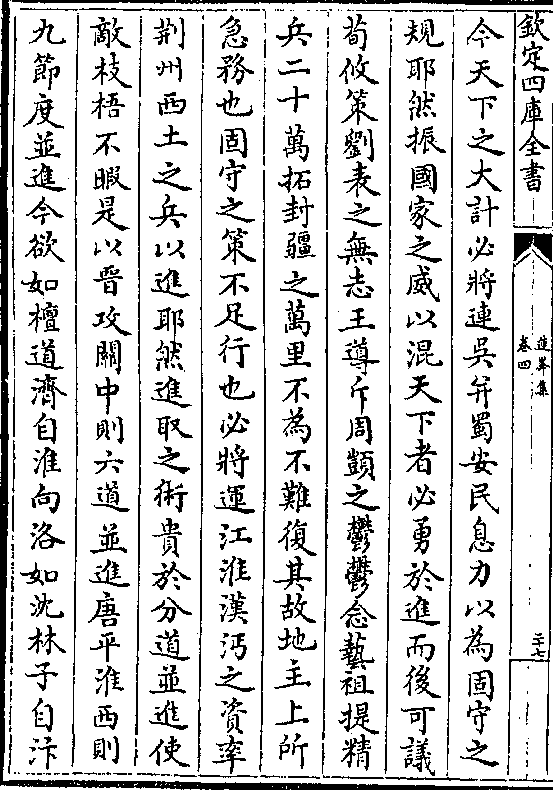 欽定四庫全書
蓮峯集
卷四
二十七
今天下之大計必將連吳并蜀安民息力以為固守之
規耶然振國家之威以混天下者必勇於進而後可議
荀攸策劉表之無志王導斥周顗之鬱鬱念藝祖提精
兵二十萬拓封疆之萬里不為不難復其故地主上所
急務也固守之策不足行也必將運江淮漢沔之資率
荆州西土之兵以進耶然進取之術貴於分道並進使
敵枝梧不暇是以晉攻關中則六道並進唐平淮西則
九節度並進今欲如檀道濟自淮向洛如沈林子自汴